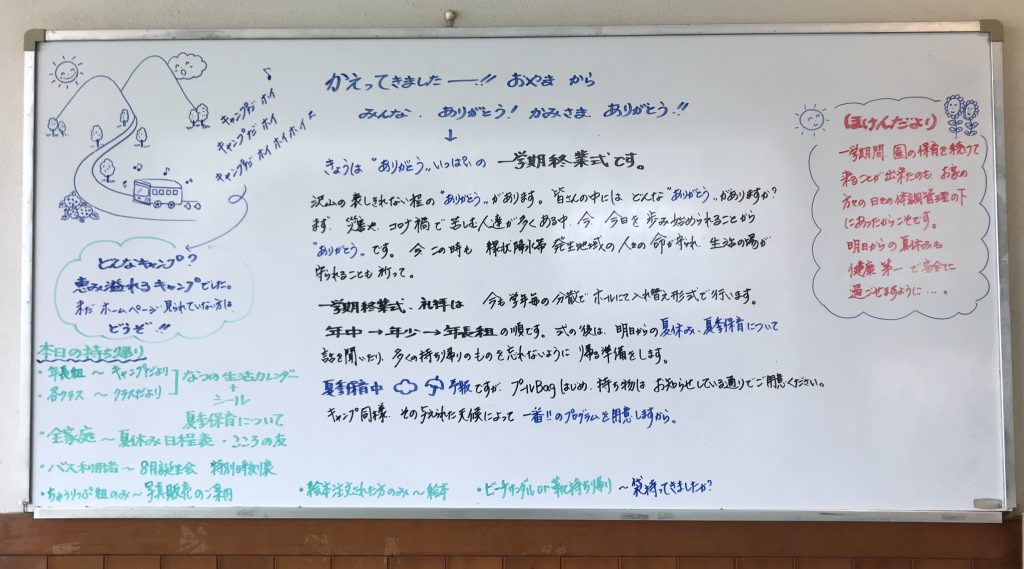 キャンプだ ホイ
キャンプだ ホイ
キャンプだ ホイ ホイホイ
どんなキャンプ?
恵み溢れるキャンプでした。
まだ ホームページ 見られていない方は
どうぞ!!
かえってきましたー!! おやま から
みんな、ありがとう! かみさま、ありがとう!!
↓
きょうは "ありがとう" いっぱいの 一学期終業式です。
沢山の表しきれない程の "ありがとう" があります。皆さんの中には どんな "ありがとう" がありますか?
まず、災害や コロナ禍で 苦しむ人達が多くある中、今、今日を歩み始められることから
"ありがとう" です。今 この時も 線状降水帯 発生地域の 人々の 命が守られ、生活の場が
守られることも 祈って。
一学期終業式、礼拝は 今も学年毎の分散で ホールにて入れ替え形式で行います。
年中→年少→年長組 の順です。式の後は、明日からの夏休み、夏季保育について
話を聞いたり、多くの持ち帰りのものを忘れないように 帰る準備をします。
夏季保育中 予報ですが、プールBagはじめ、持ち物は お知らせしている通りでご用意ください。
キャンプ同様 その与えられた天候によって 一番!!のプログラムを用意しますから。
ほけんだより
一学期間、園の保育を続けて
来ることが出来たのも お家の
方々の 日々の体調管理の下
にあったからこそです。
明日からの夏休みも
健康第一で安全に
過ごせますように…。
本日の持ち帰り
・年長組 〜 キャンプだより
・各クラス 〜 クラスだより
なつの生活カレンダー
+
シール
夏季保育について
・全家庭 〜 夏休み日程表・こころの友
・バス利用者 〜 8月誕生会 特別時刻表
・ちゅうりっぷ組のみ 〜 写真販売のご案内
・絵本注文された方のみ 〜 絵本
・ビーチサンダル or 靴持ち帰り 〜 袋持ってきましたか?